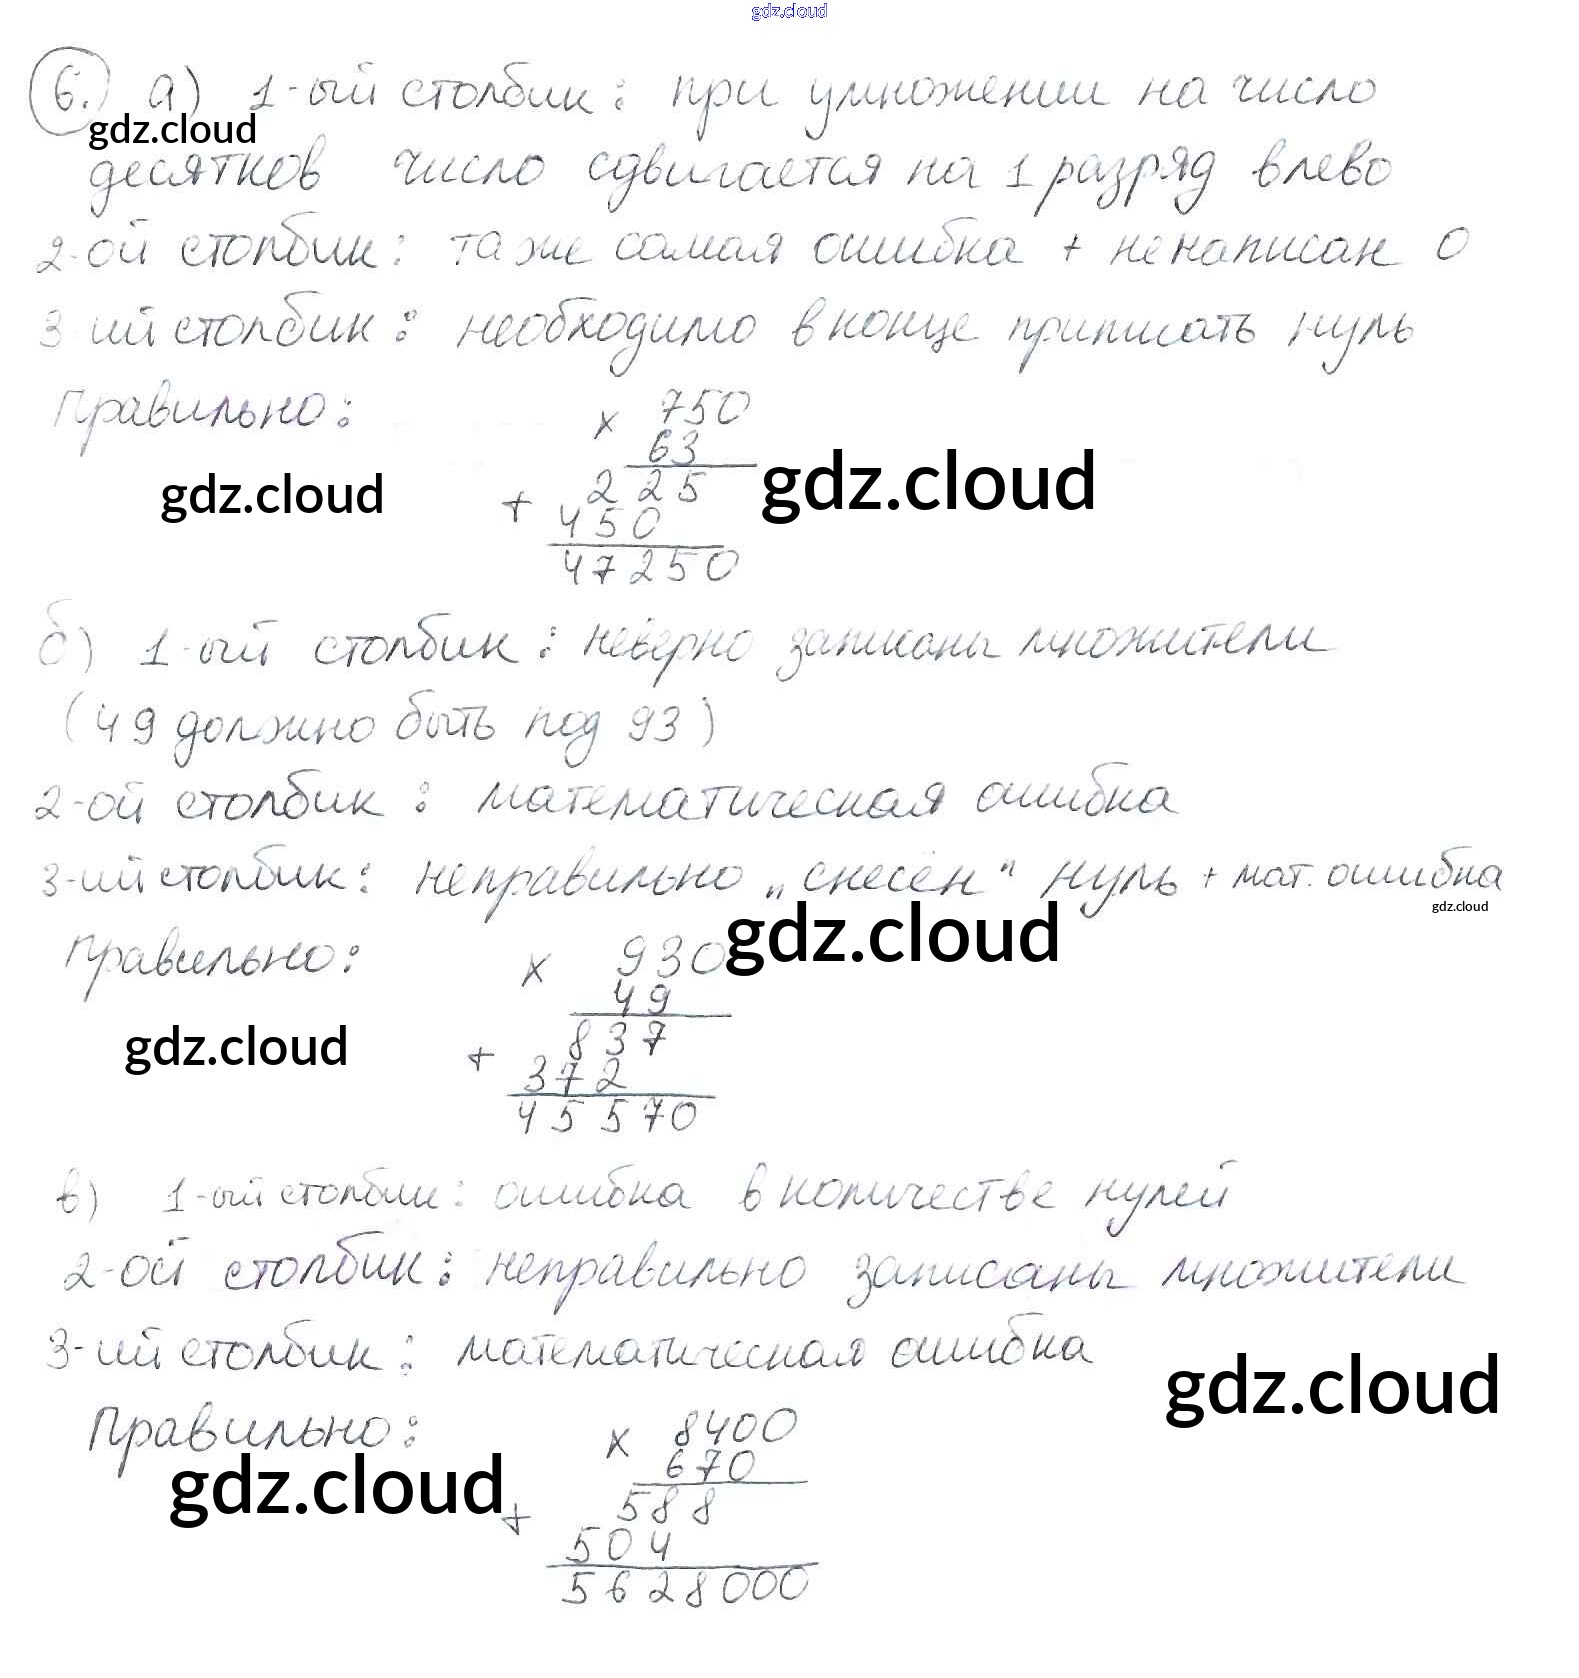 gdz.cloud
6. а) 1-ый столбик: при умножении на число
gdz.cloud
десятков число сдвигается на 1 разряд влево
2-ой столбик: та же самая ошибка + не написан 0
3-ий столбик: необходимо в конце приписать нуль
Правильно: × 750
63
gdz.cloud + 225 gdz.cloud
450
47250
б) 1-ый столбик: неверно записаны множители
(49 должно быть под 93)
2-ой столбик: математическая ошибка
3-ий столбик: неправильно „снесён" нуль + мат. ошибка
gdz.cloud
Правильно: × 930 gdz.cloud
49
gdz.cloud + 837
372
45570
в) 1-ый столбик: ошибка в количестве нулей
2-ой столбик: неправильно записаны множители
3-ий столбик: математическая ошибка
gdz.cloud
Правильно: × 8400
670
gdz.cloud + 588
504
5628000